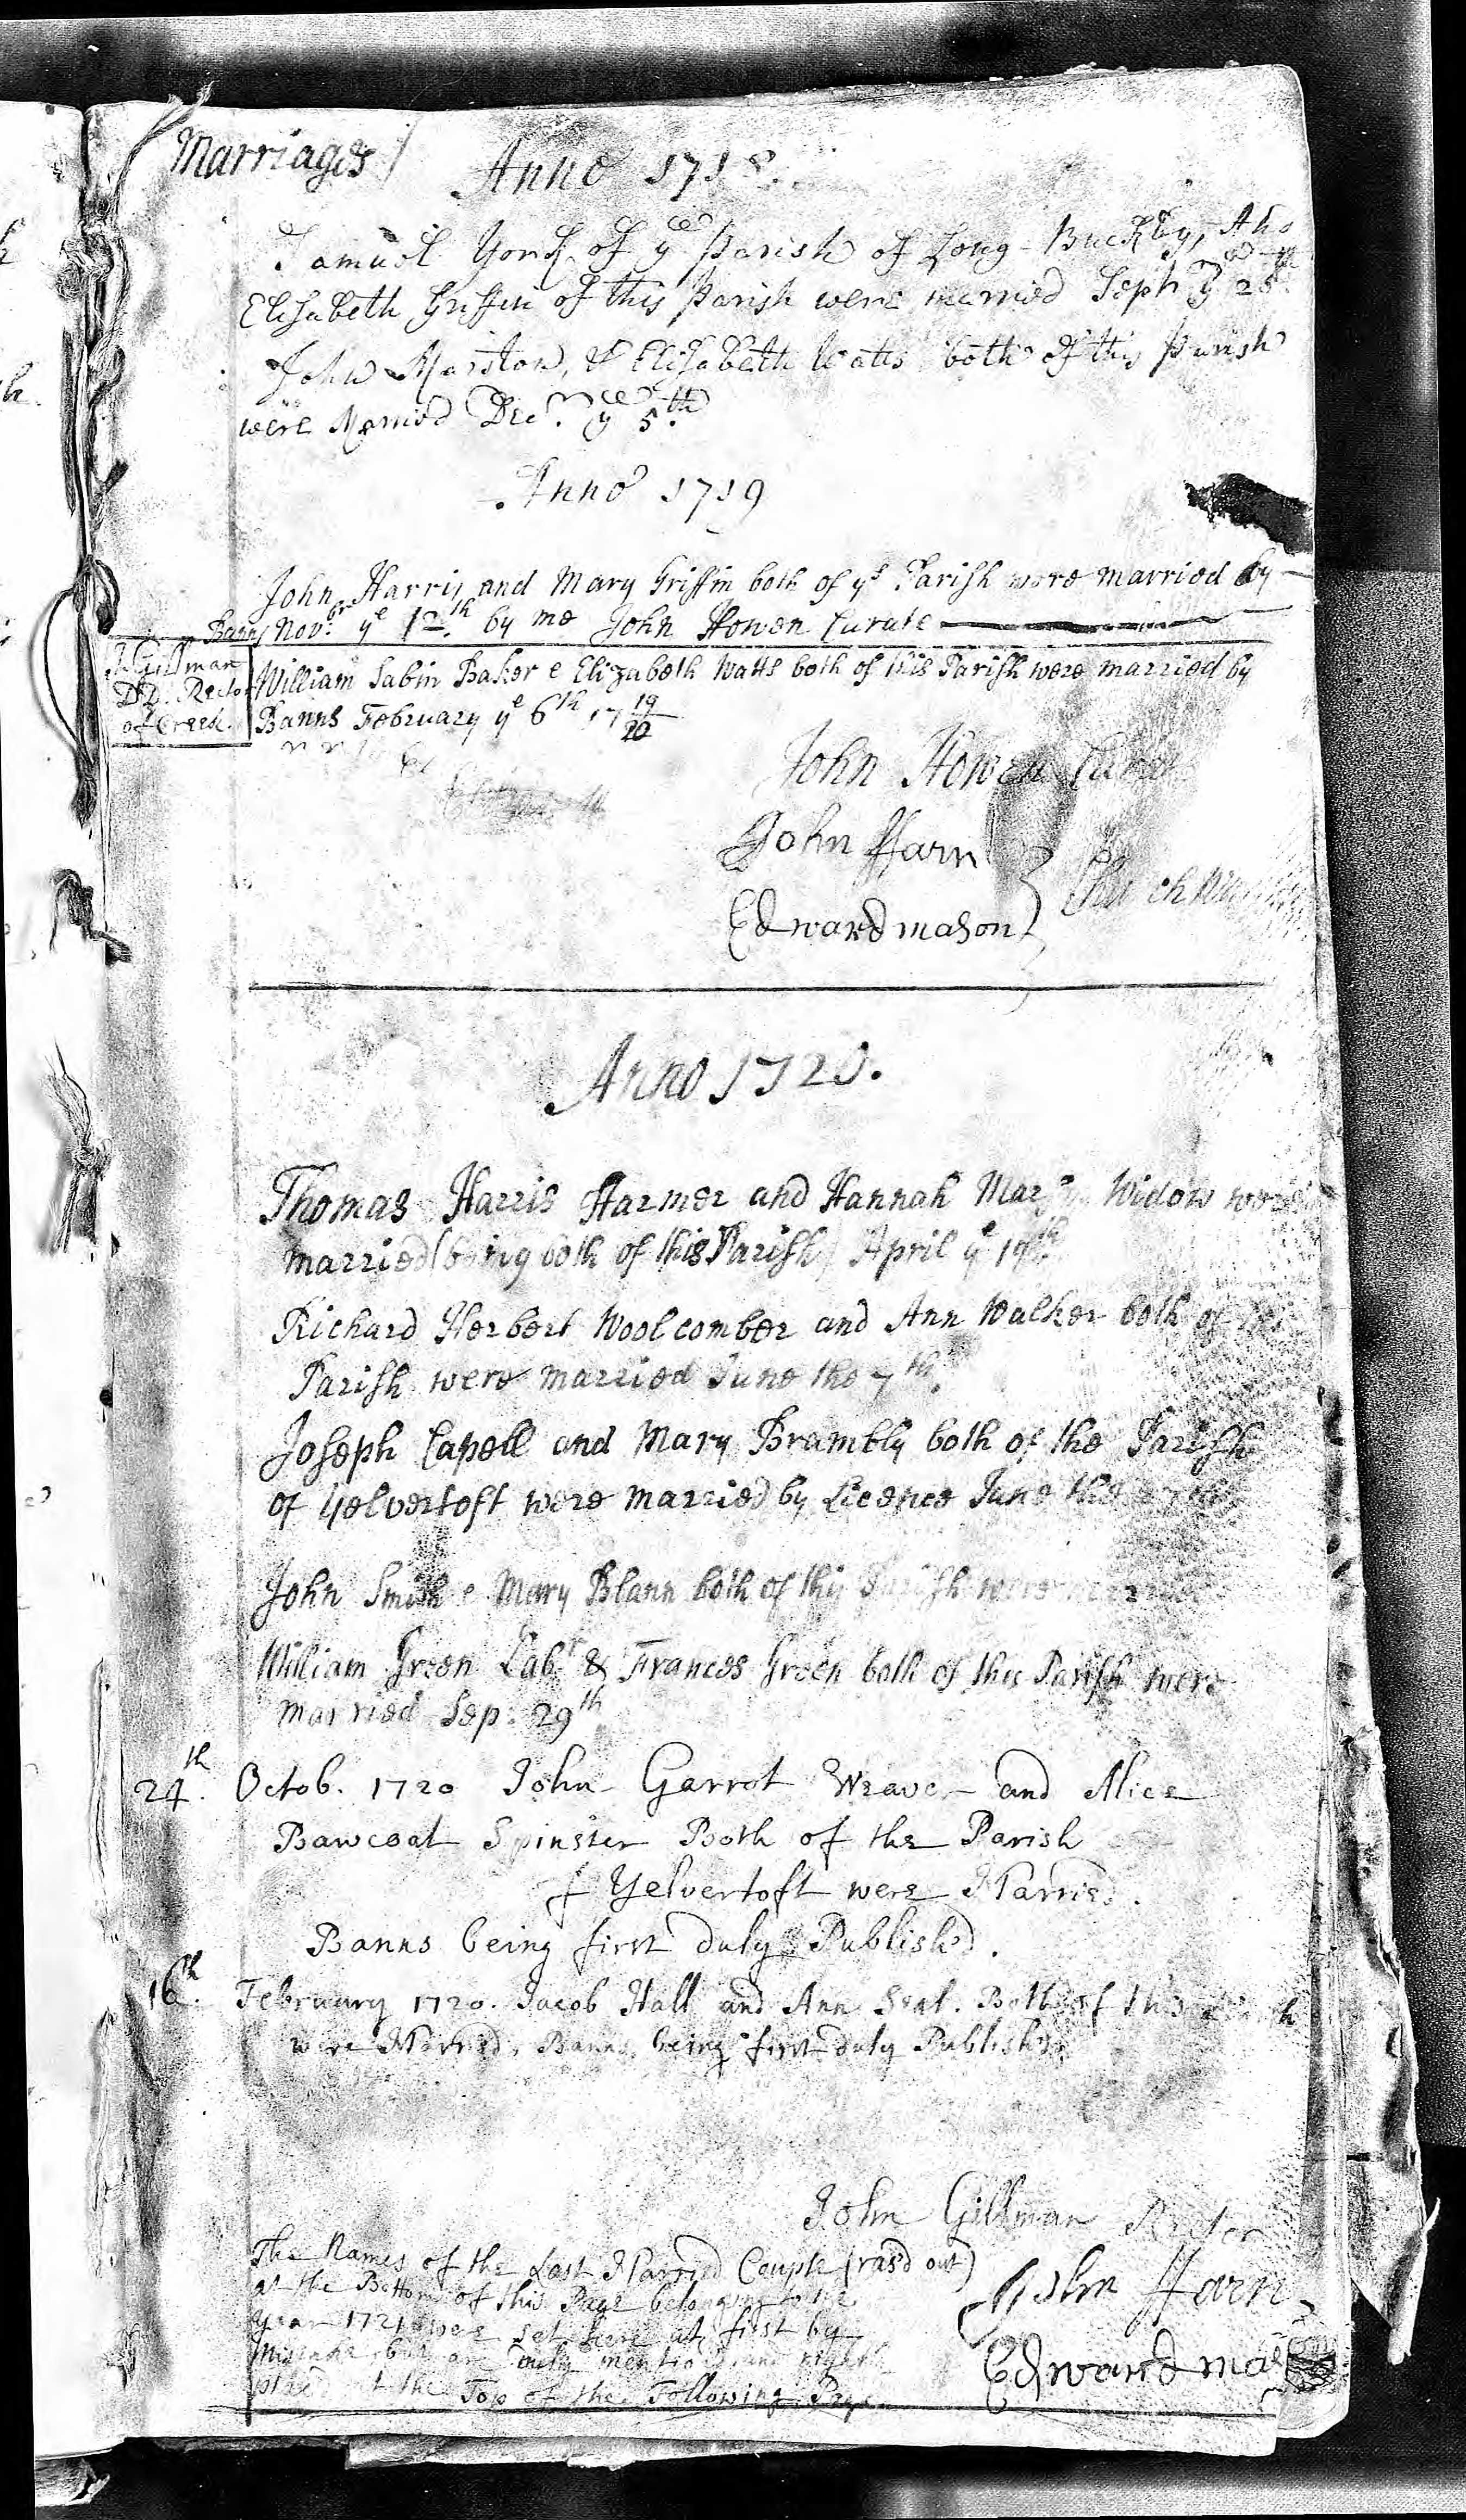 Marriages
Anno 1718.
Samuel York of ye Parish of Long-Buckby, &
Elisabeth Griffin of this Parish were married Septr ye 28th
John Marston, & Elisabeth Watts both of this Parish
were Married Decr. ye 5th
Anno 1719
John Harris and Mary Griffin both of ys Parish were married by
Banns Novbr: ye 12th. by me John Howen Curate
J. Gillman
DD. Rector
of Creek.
William Sabin Baker e Elizabeth Watts both of this Parish were married by
Banns February ye 6th 17 19/20
John Howen Curat
John Harri
Edward mason
Church
Anno 1720.
Thomas Harris Harmer and Hannah Widow were
married (being both of this Parish) April ye 19th
Richard Herbert Woolcomber and Ann Walker both of
Parish were married June the 7th.
Joseph Capell and Mary Brambly both of the Parish
of Yelvertoft were married by Licence June the
John Smith e Mary Blann both of this Parish were
William Green Labr & Frances Green both of this Parish were
married Sep. 29th
24th. Octob. 1720 John Garrot Weaver and Alice
Bawcoat Spinster Both of the Parish
of Yelvertoft were Married.
Banns being first duly Published.
16th. February 1720. Jacob Hall and Ann Seal. Both of this
were Married, Banns being first duly Published
John Gillman Rector
The Names of the Last Married Couple (ras'd out)
at the Bottom of this Page belonging to the
year 1721 were set here at first by
Mistake, but are duly mention'd and
plac'd at the Top of the Following Page.
John Harri
Edward